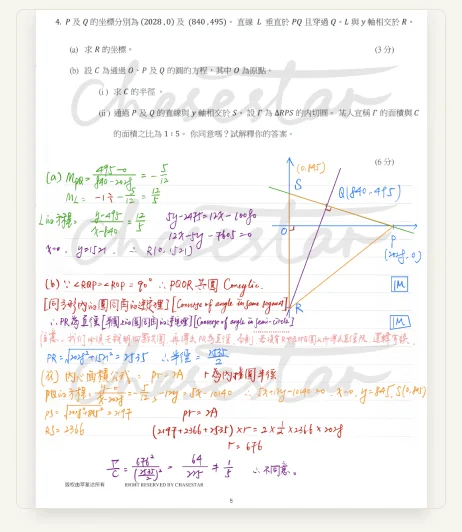 4. P 及 Q 的坐標分別為 (2028 , 0) 及 (840 , 495)。直線 L 垂直於 PQ 且穿過 Q。L 與 y 軸相交於 R。
(a) 求 R 的坐標。 (3 分)
(b) 設 C 為通過 O、P 及 Q 的圓的方程,其中 O 為原點。
(i) 求 C 的半徑。
(ii) 通過 P 及 Q 的直線與 y 軸相交於 S。設 Γ 為 ΔRPS 的內切圓。某人宣稱 Γ 的面積與 C
的面積之比為 1:5。你同意嗎?試解釋你的答案。
(6 分)
Chasestar
(a) MPQ = 495-0 / 840-2028 = -5/12
ML = -1 ÷ -5/12 = 12/5
L 方程: y-495 / x-840 = 12/5
5y-2475=12x-10080
12x-5y-7605=0
x=0, y=-1521 ∴ R(0,-1521)
(0,845)
S
Q(840,495)
O
P
(2028,0)
R
(b) ∵ ∠RQP=∠ROP=90° ∴ PQOR 共圓 Concyclic.
1M
[同弓形內的圓周角的逆定理] [Converse of angle in same segment]
∴ PR 為直徑 [半圓上的圓周角的逆定理] [Converse of angle in semi-circle]
1M
PR=√2028²+1521²=2535 ∴半徑= 2535/2
(ii) 內心面積公式: Pr=2A r為內接圓半徑
PQ 方程: y-0 / x-2028 = -5/12, -12y=5x-10140 ∴ 5x+12y-10140=0 x=0, y=845, S(0,845)
PS=√2028²+845²=2197
Pr=2A
RS=2366
(2197+2366+2535)×r=2×1/2×2366×2028
r=676
Γ/C = 676² / (2535/2)² = 64/225 ≠ 1/5 ∴ 不同意。
版權由草星池所有 RIGHT RESERVED BY CHASESTAR